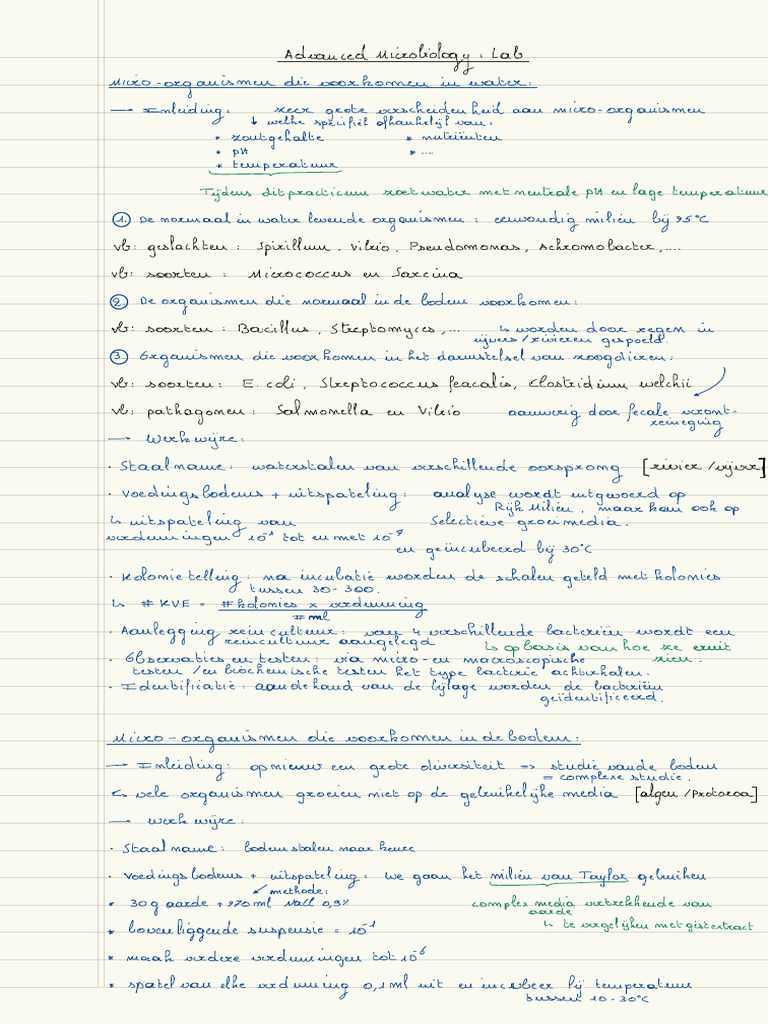 Advanced Microbiology: Lab
Micro-organismen die voorkomen in water:
→ Inleiding: zeer grote verscheidenheid aan micro-organismen
↓ welke specifiek afhankelijk van:
* zoutgehalte * nutriënten
* pH * ....
* temperatuur
Tijdens dit practicum zoetwater met neutrale pH en lage temperatuur
① De normaal in water levende organismen: eenvoudig milieu bij 25°C
vb: geslachten: Spirillum, Vibrio, Pseudomonas, Achromobacter,....
vb: soorten: Micrococcus en Sarcina
② De organismen die normaal in de bodem voorkomen:
vb: soorten: Bacillus, Streptomyces,... ↳ worden door regen in
vijvers/rivieren gespoeld.
③ Organismen die voorkomen in het darmstelsel van zoogdieren:
vb: soorten: E. coli, Streptococcus feacalis, Clostridium welchii
vb: pathogenen: Salmonella en Vibrio aanwezig door fecale veront-
reiniging
→ Werkwijze:
• Staalname: waterstalen van verschillende oorsprong [rivier/vijver]
• Voedingsbodems + uitspateling: analyse wordt uitgevoerd op
Rijk Milieu, maar kan ook op
↳ uitspateling van Selectieve groeimedia.
verdunningen 10⁻¹ tot en met 10⁻⁷
en geïncubeerd bij 30°C
• Kolonietelling: na incubatie worden de schalen geteld met kolonies
tussen 30-300.
↳ # KVE = # kolonies x verdunning
# ml
• Aanlegging reincultuur: van 4 verschillende bacteriën wordt een
reincultuur aangelegd ↳ op basis van hoe ze eruit
zien.
• Observaties en testen: via micro- en macroscopische
testen /en biochemische testen het type bacterie achterhalen.
• Identificatie: aan de hand van de bijlage worden de bacteriën
geïdentificeerd.
Micro-organismen die voorkomen in de bodem:
→ Inleiding: opnieuw een grote diversiteit => studie van de bodem
= complexe studie.
↳ vele organismen groeien niet op de gebruikelijke media [algen/Protozoa]
→ werkwijze:
• Staalname: bodemstalen naar keuze
• Voedingsbodems + uitspateling: we gaan het milieu van Taylor gebruiken
↙ methode:
* 30g aarde + 270 ml NaCl 0,9% complex media vertrekkende van
aarde
* bovenliggende suspensie = 10⁻¹ ↳ te vergelijken met gistextract
* maak verdere verdunningen tot 10⁻⁶
* spatel van elke verdunning 0,1 ml uit en incubeer bij temperatuur
tussen 10-30°C